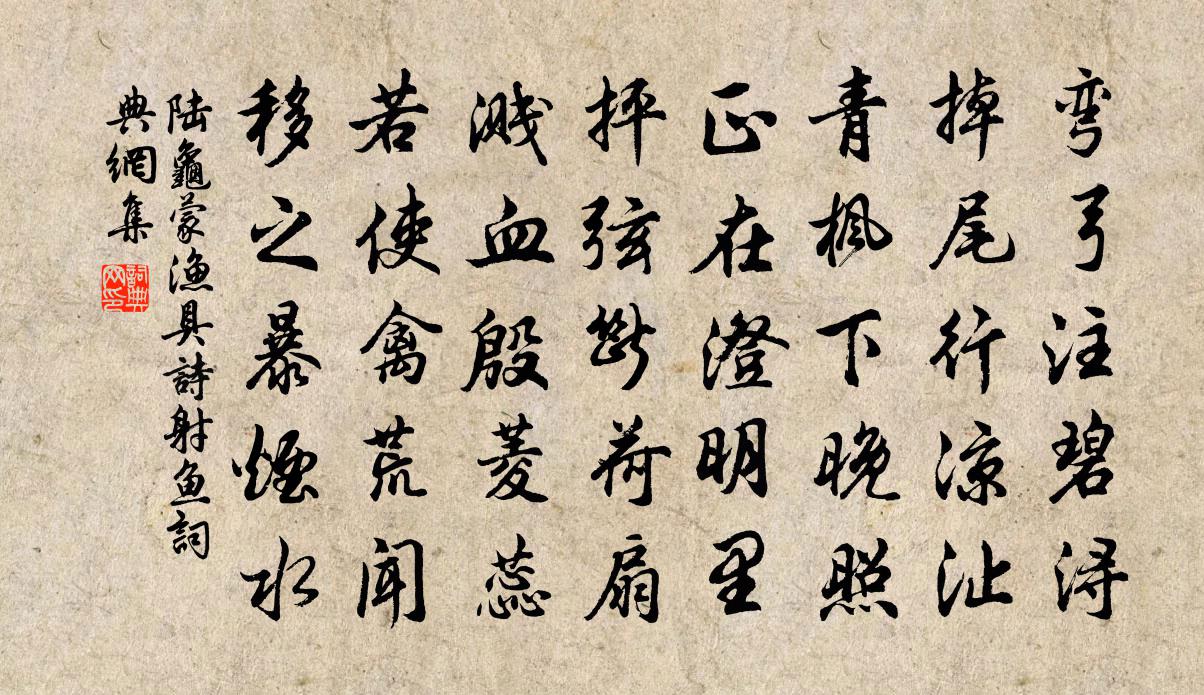 弯弓注碧浔
掉尾行凉沚
青枫下晚照
正在澄明里
抨弦断荷扇
溅血殷菱蕊
若使禽荒闻
移之暴煙水
陆龜蒙渔具詩射鱼詞
典網集
詞典网印